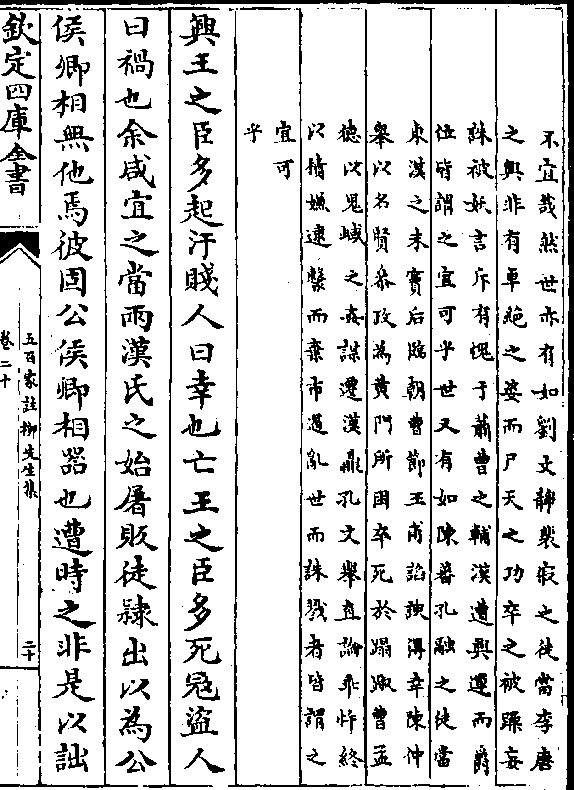 不宜哉然世亦有如劉文靜裴寂之徒當李唐
之興非有卓絶之姿而尸天之功卒之被躁妄
誅被妖言斥有愧于蕭曹之輔漢遭興運而爵
位皆謂之宜可乎世又有如陳蕃孔融之徒當
東漢之末竇后臨朝曹節王甫諂諛得幸陳仲
舉以名賢叅政為黄門所困卒死於蹋踧曹孟
德以鬼蜮之姦謀遷漢鼎孔文舉直論乖忤終
以情嫌逮繫而棄市遭亂世而誅戮者皆謂之
宜可
乎
興王之臣多起汙賤人曰幸也亡王之臣多死冦盜人
曰禍也余咸宜之當兩漢氏之始屠販徒隸出以為公
侯卿相無他焉彼固公侯卿相器也遭時之非是以詘
欽定四庫全書
五百家註柳先生集
卷二十
二十